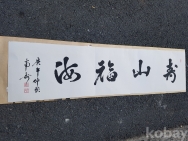 壽山福海
庚申仲秋
kobay